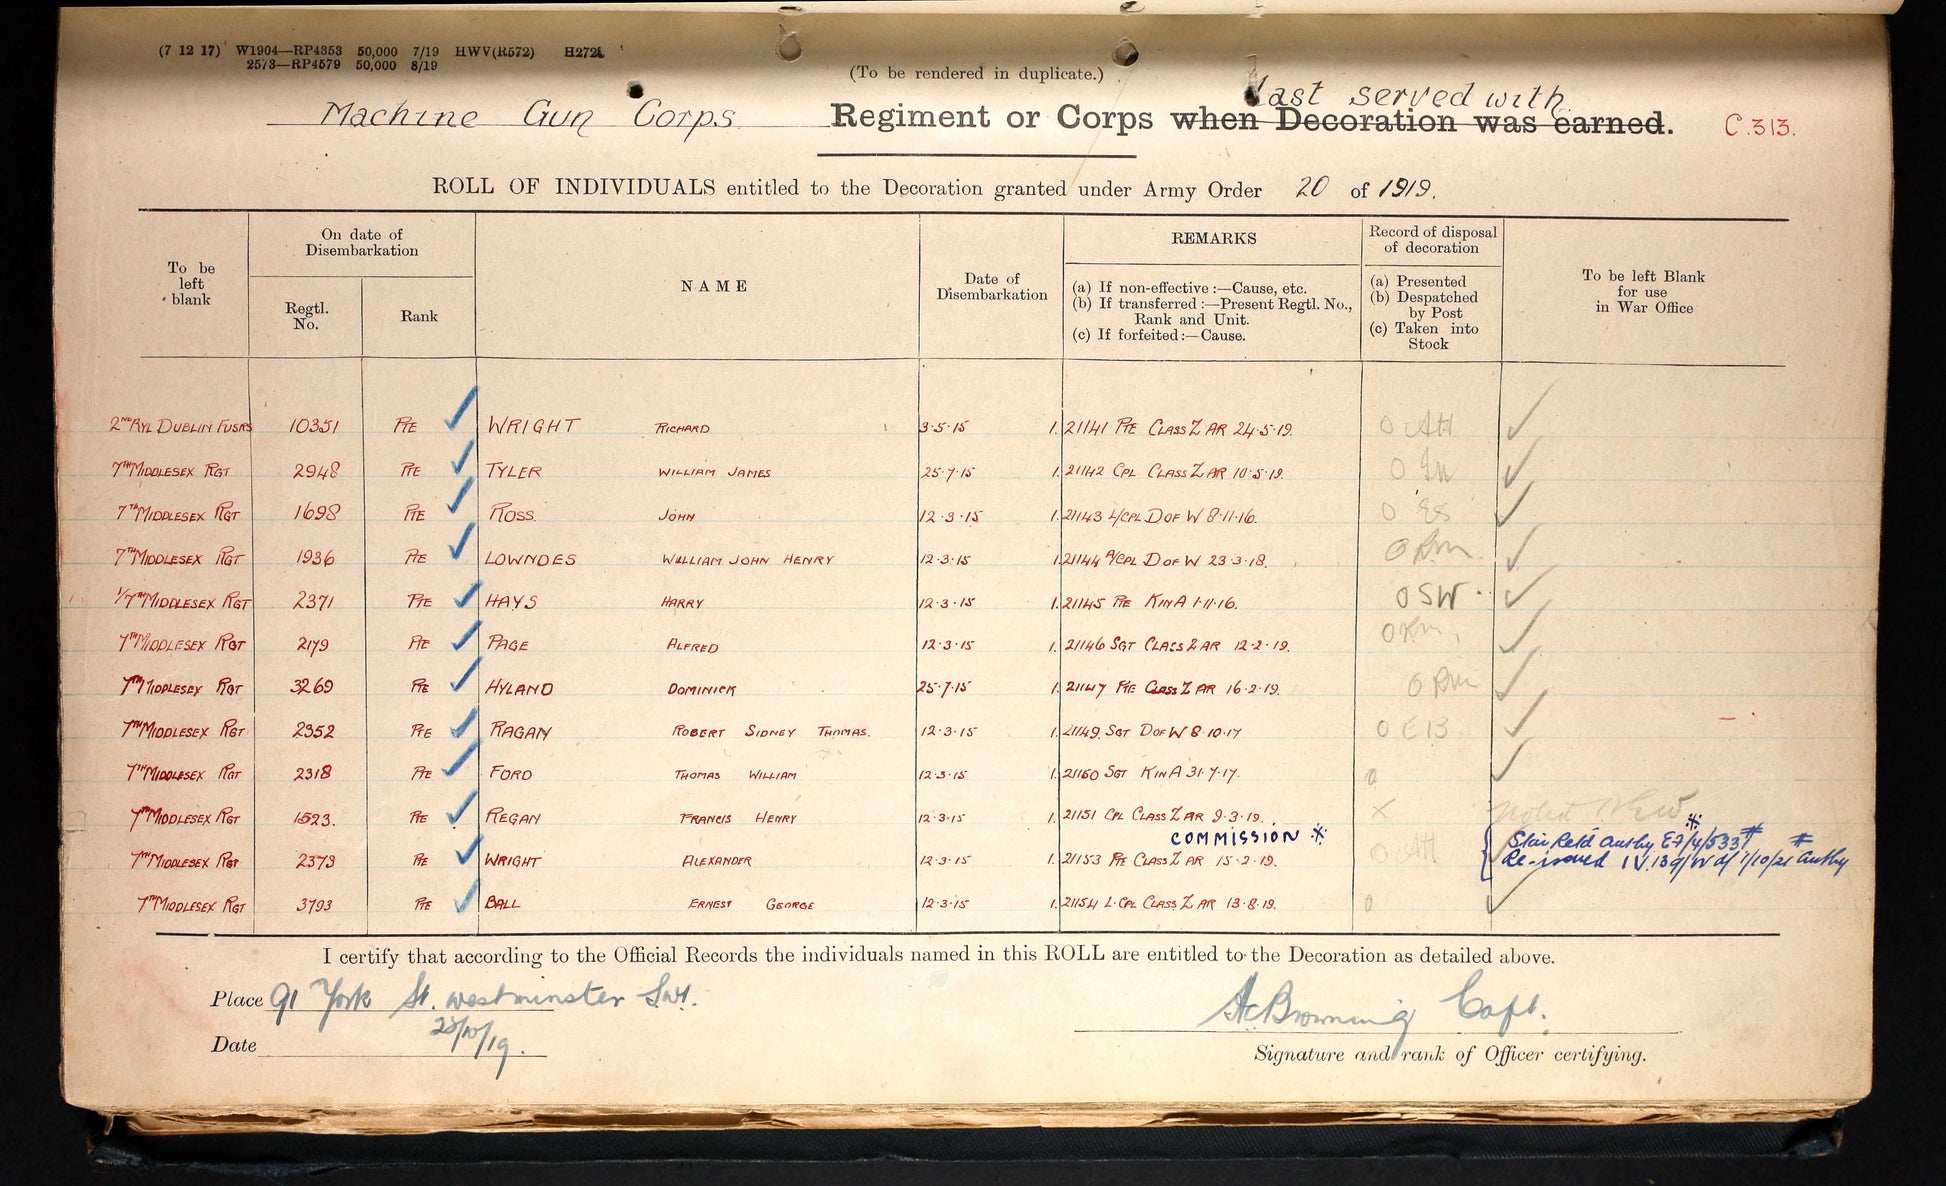 (7 12 17) W1904—RP4353 50,000 7/19 HWV(R572) H2721
2573—RP4579 50,000 8/19
(To be rendered in duplicate.)
last served with
Machine Gun Corps Regiment or Corps when Decoration was earned. C.313.
ROLL OF INDIVIDUALS entitled to the Decoration granted under Army Order 20 of 1919.
To be left blank
On date of Disembarkation
Regtl. No.
Rank
NAME
Date of Disembarkation
REMARKS
(a) If non-effective :—Cause, etc.
(b) If transferred :—Present Regtl. No., Rank and Unit.
(c) If forfeited :—Cause.
Record of disposal of decoration
(a) Presented
(b) Despatched by Post
(c) Taken into Stock
To be left Blank for use in War Office
2ND RYL DUBLIN FUSRS 10351 PTE WRIGHT RICHARD 3·5·15 1. 21141 PTE CLASS Z AR 24·5·19. O
7TH MIDDLESEX RGT 2948 PTE TYLER WILLIAM JAMES 25·7·15 1. 21142 CPL CLASS Z AR 10·5·19. O
7TH MIDDLESEX RGT 1698 PTE ROSS. JOHN 12·3·15 1. 21143 L/CPL D OF W 8·11·16. O
7TH MIDDLESEX RGT 1936 PTE LOWNDES WILLIAM JOHN HENRY 12·3·15 1. 21144 A/CPL D OF W 23·3·18. O
1/7TH MIDDLESEX RGT 2371 PTE HAYS HARRY 12·3·15 1. 21145 PTE K IN A 1·11·16. O SW
7TH MIDDLESEX RGT 2179 PTE PAGE ALFRED 12·3·15 1. 21146 SGT CLASS Z AR 12·2·19. O
7TH MIDDLESEX RGT 3269 PTE HYLAND DOMINICK 25·7·15 1. 21147 PTE CLASS Z AR 16·2·19. O
7TH MIDDLESEX RGT 2352 PTE RAGAN ROBERT SIDNEY THOMAS. 12·3·15 1. 21149. SGT D OF W 8·10·17 O E B
7TH MIDDLESEX RGT 2318 PTE FORD THOMAS WILLIAM 12·3·15 1. 21150 SGT K IN A 31·7·17. O
7TH MIDDLESEX RGT 1523. PTE REGAN FRANCIS HENRY 12·3·15 1. 21151 CPL CLASS Z AR 9·3·19. X Noted
COMMISSION *
7TH MIDDLESEX RGT 2379 PTE WRIGHT ALEXANDER 12·3·15 1. 21153 PTE CLASS Z AR 15·2·19. O
Star Retd Authy E7/4/533 #
Re-issued IV.139/W d/ 7/10/21 Authy #
7TH MIDDLESEX RGT 3793 PTE BALL ERNEST GEORGE 12·3·15 1. 21154 L·CPL CLASS Z AR 13·8·19. O
I certify that according to the Official Records the individuals named in this ROLL are entitled to the Decoration as detailed above.
Place 91 York St. Westminster S.W.1.
Date /10/19.
Browning Capt.
Signature and rank of Officer certifying.